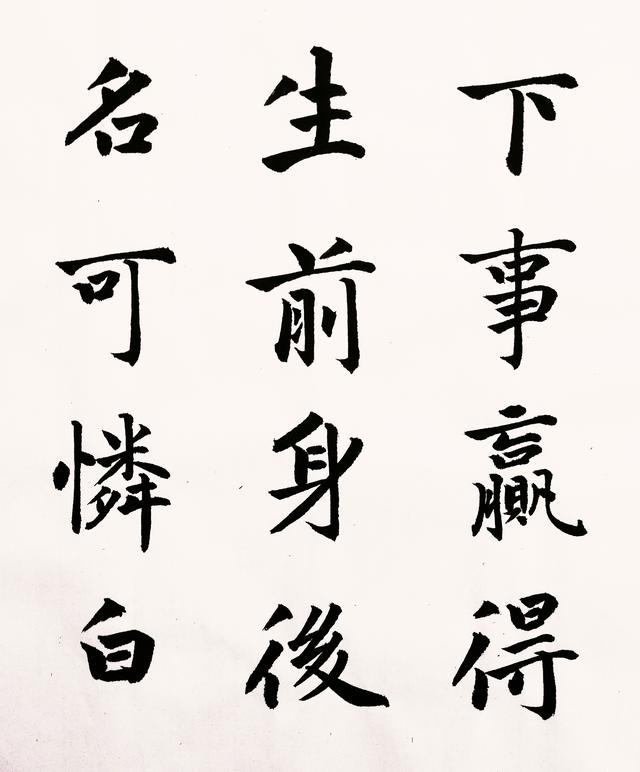 下事贏得
生前身後
名可憐白